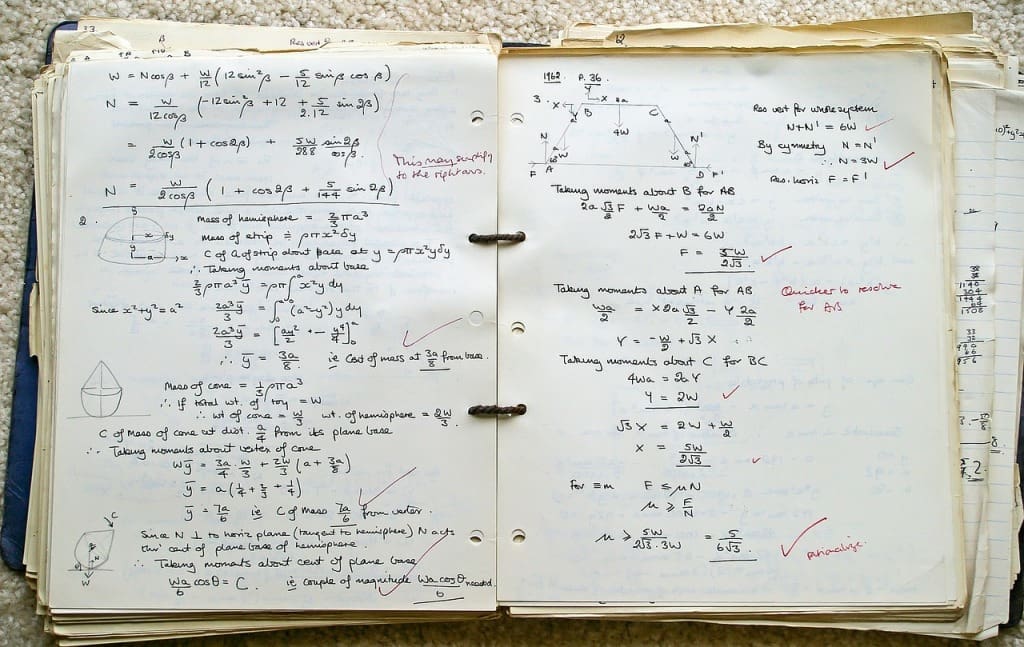 13
W = Ncosβ + W/12 (12 sin²β − 5/12 sinβ cosβ)
N = W/12cosβ (−12sin²β + 12 + 5/2.12 sin2β)
= W/2cosβ (1 + cos2β) + 5W/288 sin2β/cosβ.
This may simplify
to the right ans.
N = W/2cosβ (1 + cos2β + 5/144 sin2β)
2.
Mass of hemisphere = 2/3 πa³
Mass of strip ≑ ρπx²δy
C of G of strip about base at y = ρπx²yδy
∴ Taking moments about base
2/3 ρπa³ȳ = ρπ∫x²y dy
Since x²+y² = a² 2a³ȳ/3 = ∫(a²−y²) y dy
2a³ȳ/3 = [ay²/2 + − y⁴/4]
∴ ȳ = 3a/8. ie Cent of mass at 3a/8 from base.
Mass of cone = 1/3 ρπa³
∴ If total wt. of toy = W
∴ wt of cone = W/3 wt. of hemisphere = 2W/3.
C of Mass of cone at dist. a/4 from its plane base
∴ Taking moments about vertex of cone
Wȳ = 3a/4 . W/3 + 2W/3 (a + 3a/8)
ȳ = a(1/4 + 2/3 + 1/4)
ȳ = 7a/6 ie C of Mass 7a/6 from vertex.
Since N ⊥ to horiz plane (tangent to hemisphere) N acts
thro' cent of plane base of hemisphere.
∴ Taking moments about cent of plane base
Wa/6 cosθ = C. ie couple of magnitude Wa cosθ/6 needed.
12
1962 P.36
3.
Y
X
X
a
B
C
Y
4W
N
N'
W
W
F
A
D
F'
Res vert for whole system
N+N' = 6W
By symmetry N = N'
∴ N = 3W
Res. horiz F = F'
Taking moments about B for AB
2a√3/2 F + Wa/2 = 2aN/2
2√3F + W = 6W
F = 5W/2√3.
Taking moments about A for AB
Quicker to resolve
for AB
Wa/2 = X2a√3/2 − Y 2a/2
Y = −W/2 + √3 X
Taking moments about C for BC
4Wa = 2aY
Y = 2W
√3X = 2W + W/2
X = 5W/2√3
For ≡m F ≤ μN
μ ≥ F/N
μ ≥ 5W/2√3.3W = 5/6√3.
rationalize.